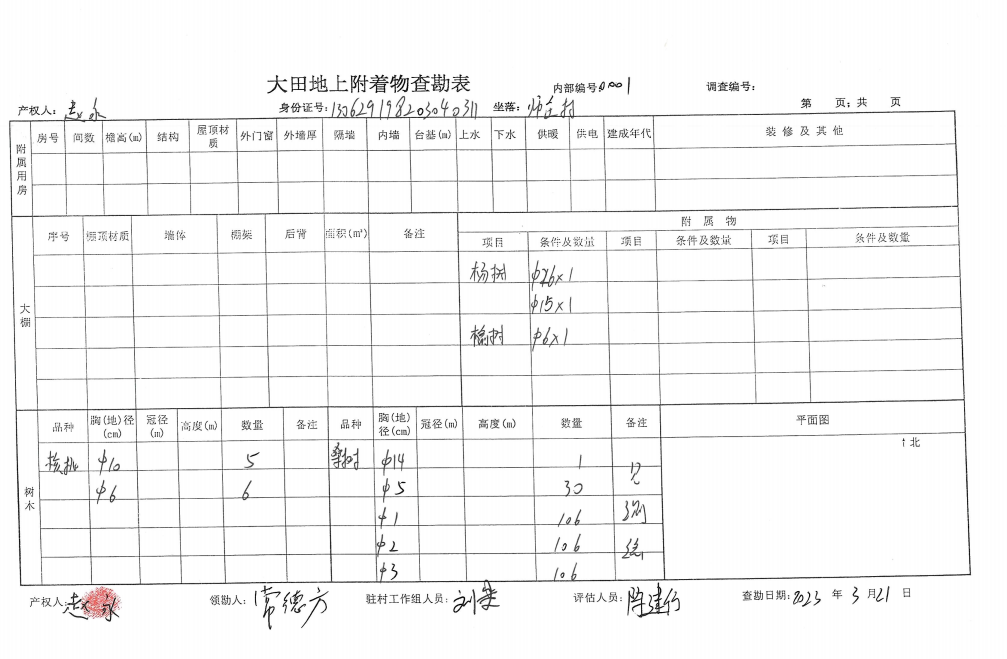 大田地上附着物查勘表
内部编号0001 调查编号:
产权人: 赵永 身份证号: 130629198203040311 坐落: 村 第 页; 共 页
附属用房 房号 间数 檐高(m) 结构 屋顶材质 外门窗 外墙厚 隔墙 内墙 台基(m) 上水 下水 供暖 供电 建成年代 装修及其他
大棚 序号 棚顶材质 墙体 棚架 后背 面积(m²) 备注 附属物
项目 条件及数量 项目 条件及数量 项目 条件及数量
杨树 φ26×1
φ15×1
榆树 φ6×1
树木 品种 胸(地)径(cm) 冠径(m) 高度(m) 数量 备注 品种 胸(地)径(cm) 冠径(m) 高度(m) 数量 备注 平面图
↑北
核桃 φ10 5 桑树 φ14 1
φ6 6 φ5 30
φ1 106
φ2 106
φ3 106
产权人: 赵永 领勘人: 常德方 驻村工作组人员: 刘 评估人员: 陈建行 查勘日期: 2023 年 3 月 21 日